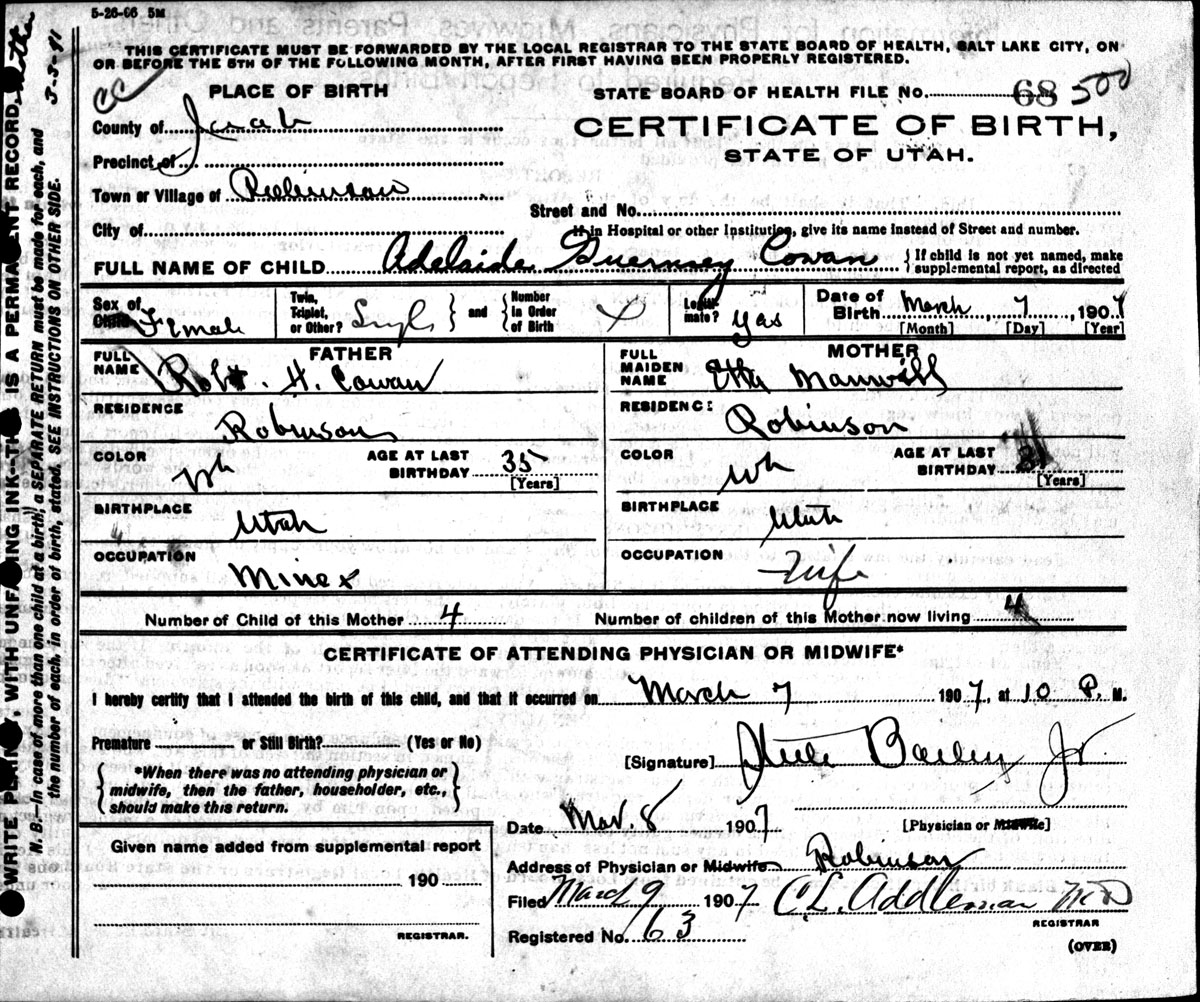 5-26-06 5M
THIS CERTIFICATE MUST BE FORWARDED BY THE LOCAL REGISTRAR TO THE STATE BOARD OF HEALTH, SALT LAKE CITY, ON
OR BEFORE THE 5TH OF THE FOLLOWING MONTH, AFTER FIRST HAVING BEEN PROPERLY REGISTERED.
PLACE OF BIRTH
STATE BOARD OF HEALTH FILE No. 68 500
County of Juab
CERTIFICATE OF BIRTH,
Precinct of
STATE OF UTAH.
Town or Village of Robinson
Street and No.
City of
If in Hospital or other Institution, give its name instead of Street and number.
FULL NAME OF CHILD Adelaide Guernsey Cowan { If child is not yet named, make
supplemental report, as directed
Sex of Child Female
Twin, Triplet, or Other? Single } and { Number in Order of Birth
Legitimate? yes
Date of Birth March 7, 1907
[Month] [Day] [Year]
FATHER
FULL NAME Robt. H. Cowan
RESIDENCE Robinson
COLOR Wh AGE AT LAST BIRTHDAY 35
[Years]
BIRTHPLACE Utah
OCCUPATION Miner
MOTHER
FULL MAIDEN NAME Etta Manwill
RESIDENCE Robinson
COLOR Wh AGE AT LAST BIRTHDAY 31
[Years]
BIRTHPLACE Utah
OCCUPATION Wife
Number of Child of this Mother 4 Number of children of this Mother now living 4
CERTIFICATE OF ATTENDING PHYSICIAN OR MIDWIFE*
I hereby certify that I attended the birth of this child, and that it occurred on March 7 1907, at 10 P. M.
Premature or Still Birth? (Yes or No)
{ *When there was no attending physician or
midwife, then the father, householder, etc.,
should make this return. }
[Signature] Steele Bailey Jr.
Date Mar. 8 1907 [Physician or Midwife]
Given name added from supplemental report
190
REGISTRAR.
Address of Physician or Midwife Robinson
Filed March 9 1907 C.L. Addleman MD
REGISTRAR
Registered No. 63
(OVER)
WRITE PLAINLY, WITH UNFADING INK—THIS IS A PERMANENT RECORD.
N. B.—In case of more than one child at a birth, a SEPARATE RETURN must be made for each, and
the number of each, in order of birth, stated. SEE INSTRUCTIONS ON OTHER SIDE.